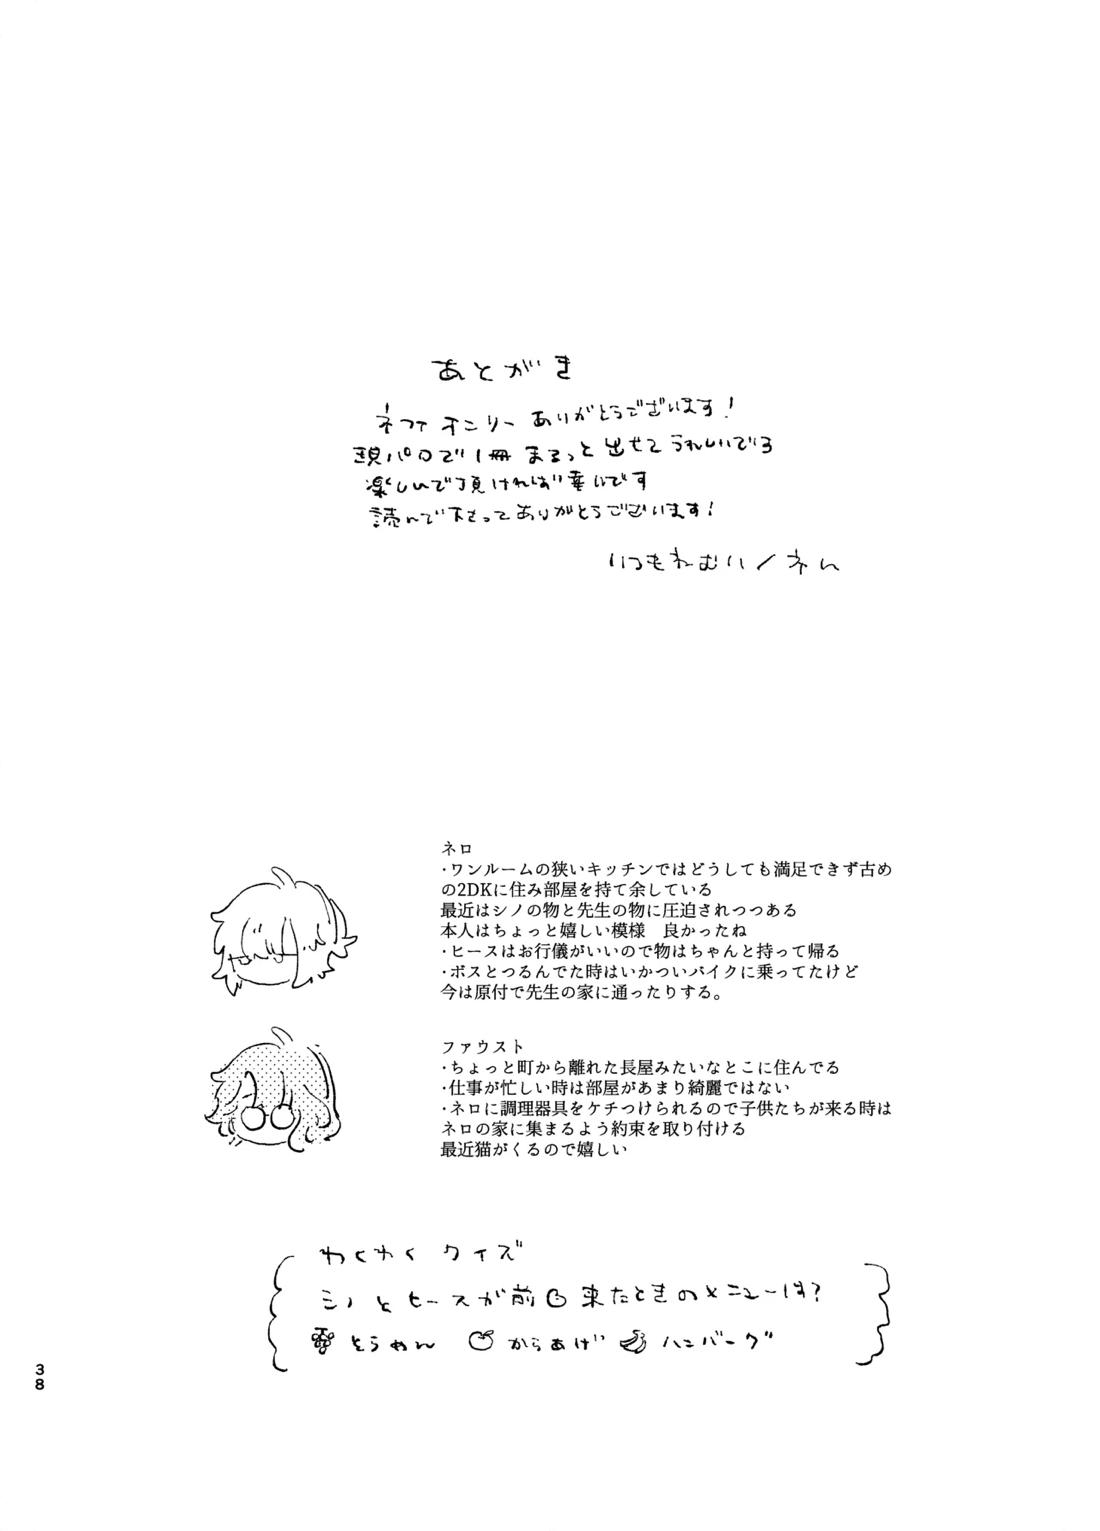 あとがき
ネファオンリーありがとうございます!
現パロで1冊まるっと出せてうれしいです
楽しんで頂ければ幸いです
読んで下さってありがとうございます!
いつもねむい/ネん
ネロ
・ワンルームの狭いキッチンではどうしても満足できず古め
の2DKに住み部屋を持て余している
最近はシノの物と先生の物に圧迫されつつある
本人はちょっと嬉しい模様　良かったね
・ヒースはお行儀がいいので物はちゃんと持って帰る
・ボスとつるんでた時はいかついバイクに乗ってたけど
今は原付で先生の家に通ったりする。
ファウスト
・ちょっと町から離れた長屋みたいなとこに住んでる
・仕事が忙しい時は部屋があまり綺麗ではない
・ネロに調理器具をケチつけられるので子供たちが来る時は
ネロの家に集まるよう約束を取り付ける
最近猫がくるので嬉しい
わくわくクイズ
シノとヒースが前の来たときのメニューは?
そうめん からあげ ハンバーグ
38